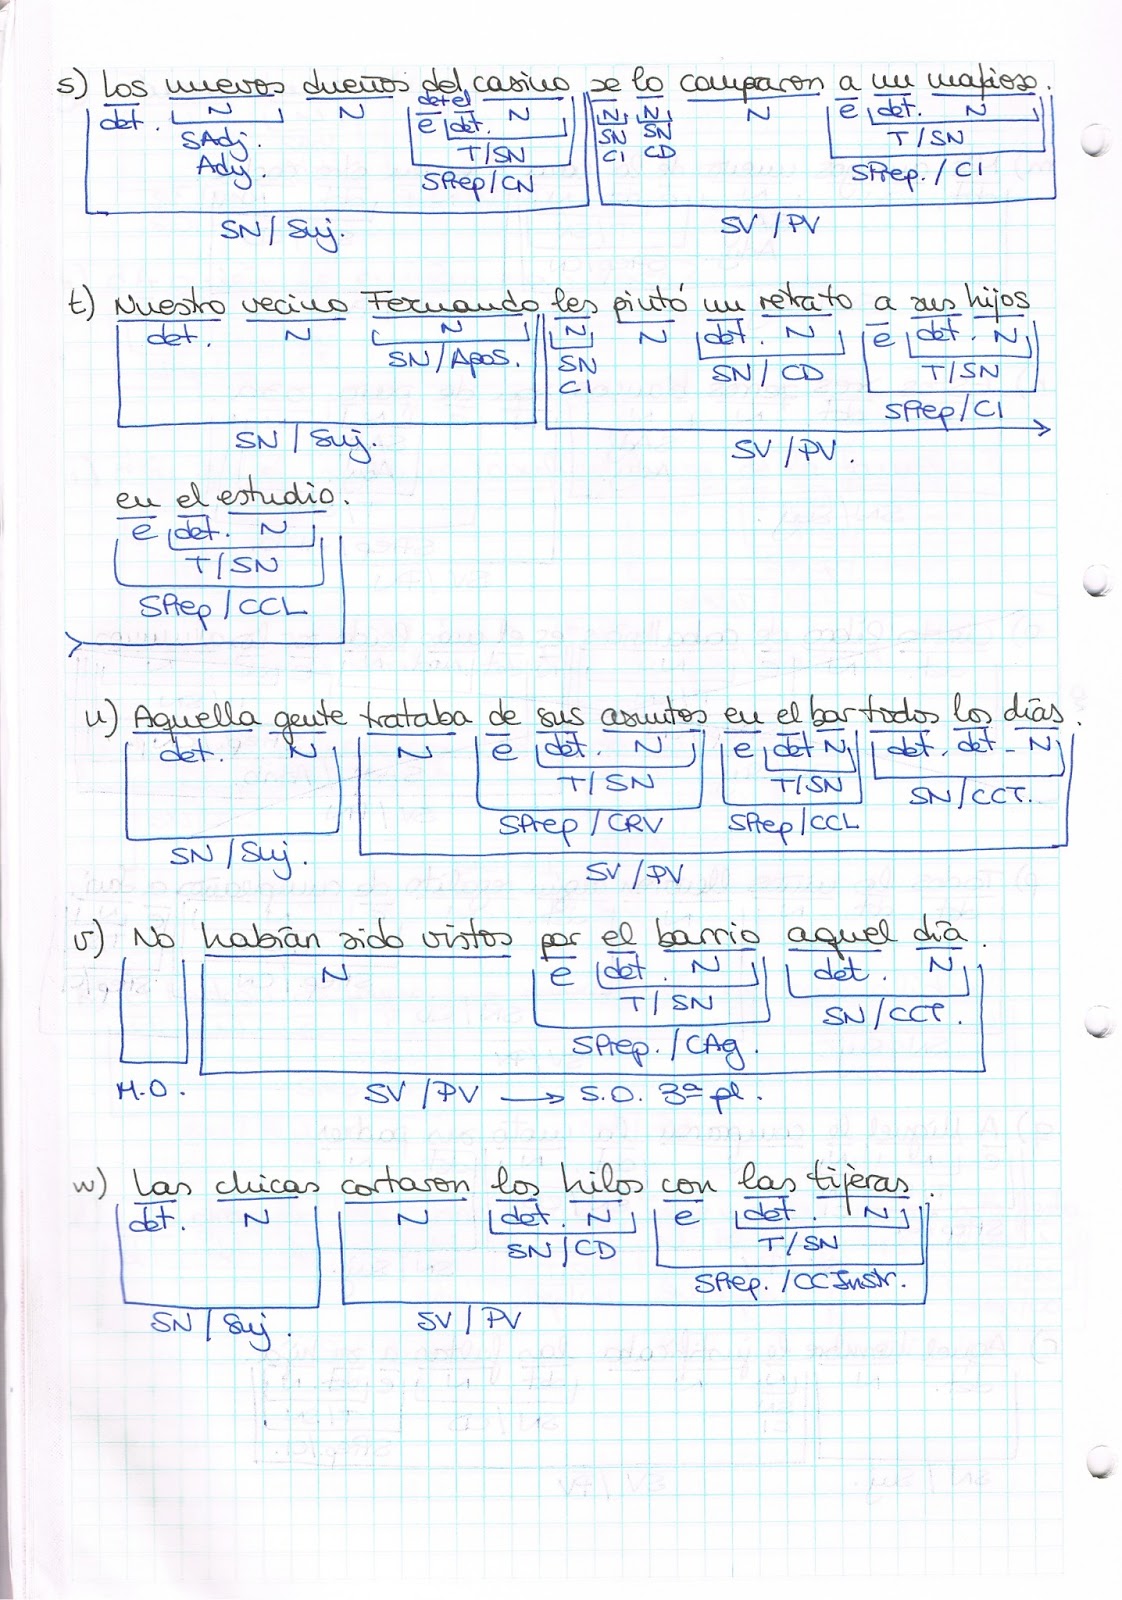 s) Los nuevos dueños del casino se lo compraron a un mafioso.
det. N N det el e det. N N N N e det. N
SAdj. T/SN SN SN T/SN
Adj. SPrep/CN CI CD SPrep./CI
SN/Suj. SV/PV
t) Nuestro vecino Fernando les pintó un retrato a sus hijos
det. N N N N det. N e det. N
SN/Apos. SN SN/CD T/SN
CI SPrep/CI
SN/Suj. SV/PV.
en el estudio.
e det. N
T/SN
SPrep/CCL
u) Aquella gente trataba de sus asuntos en el bar todos los días.
det. N N e det. N e det N det. det. N
T/SN T/SN SN/CCT.
SPrep/CRV SPrep/CCL
SN/Suj. SV/PV
v) No habían sido vistos por el barrio aquel día.
N e det. N det. N
T/SN SN/CCT.
SPrep./CAg.
M.O. SV/PV → S.O. 3ª pl.
w) Las chicas cortaron los hilos con las tijeras.
det. N N det. N e det. N
SN/CD T/SN
SPrep./CCInstr.
SN/Suj. SV/PV